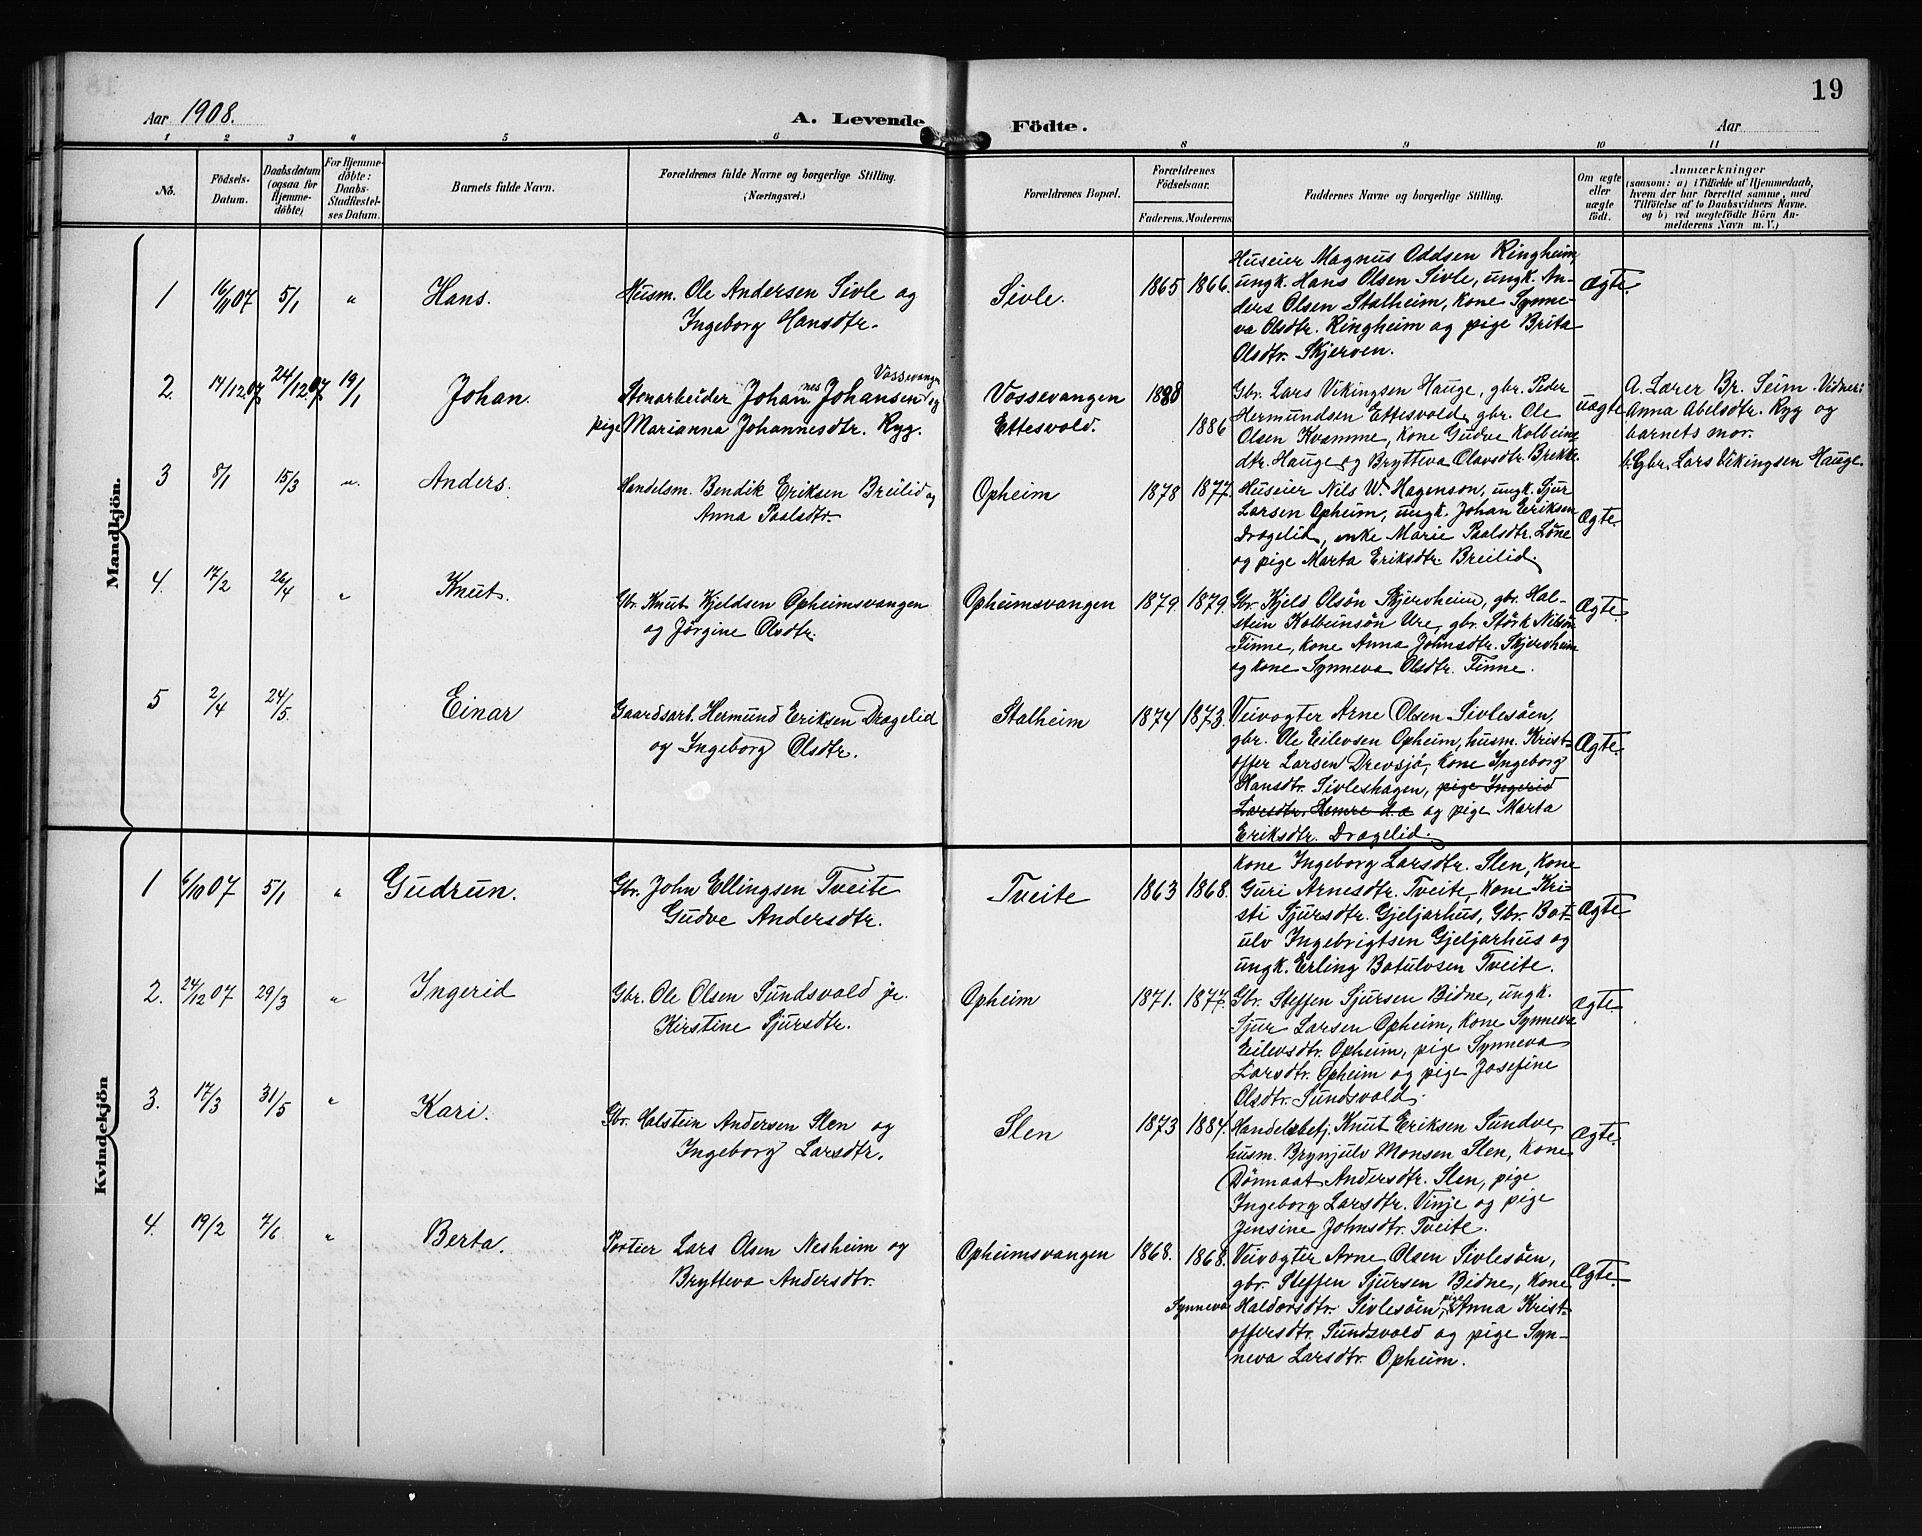 19
Aar 1908.
A. Levende Födte.
Aar
1 2 3 4 5 6 8 9 10 11
No.
Födsels-Datum.
Daabsdatum (ogsaa for Hjemme-døbte)
For Hjemme-døbte: Daabs-Stadfæstel-ses Datum.
Barnets fulde Navn.
Forældrenes fulde Navne og borgerlige Stilling. (Næringsvei.)
Forældrenes Bopæl.
Forældrenes Födselsaar.
Faderens. Moderens.
Faddernes Navne og borgerlige Stilling.
Om ægte eller uægte født.
Anmærkninger
(saasom: a) i Tilfælde af Hjemmedaab,
hvem der har forrettet samme, med
Tilföielse af to Daabsvidners Navne.
og b) ved uægtefödte Börn An-
melderens Navn m. V.)
Mandkjön.
1 16/11 07 5/1 " Hans.
Husm. Ole Andersen Sivle og
Ingeborg Hansdtr.
Sivle. 1865 1866.
Huseier Magnus Oddsen Ringheim,
ungk. Hans Olsen Sivle, ungk. An-
ders Olsen Stalheim, kone Synne-
va Olsdtr. Ringheim og pige Brita
Olsdtr. Skjerven.
Ægte.
2. 14/12 07 24/12 07 19/1 Johan.
Vossevangen
Stenarbeider Johan nes Johansen og
pige Marianna Johannesdtr. Ryg.
Vossevangen 1880
Ettesvold. 1886
Gbr. Lars Vikingsen Hauge, gbr. Peder
Hermundsen Ettesvold, gbr. Ole
Olsen Kvamme, kone Gudve Kolbeins-
dtr. Hauge og Brytteva Olavsdtr. Brekke.
uægte
A. Lærer Br. Seim. Vidner:
Anna Abelsdtr. Ryg og
barnets mor.
b. Gbr. Lars Vikingsen Hauge.
3 8/1 15/3 " Anders.
Handelsm. Bendik Eriksen Breilid og
Anna Paalsdtr.
Opheim 1878 1877.
Huseier Nils W. Hagenson, ungk. Sjur
Larsen Opheim, ungk. Johan Eriksen
Dragelid, enke Marie Paalsdtr. Löne
og pige Marta Eriksdtr. Breilid.
Ægte.
4. 17/2 26/4 " Knut.
Gbr. Knut Kjeldsen Opheimsvangen
og Jörgine Olsdtr.
Opheimsvangen 1879. 1879.
Gbr. Kjeld Olsön Skjervheim, gbr. Hal-
stein Kolbeinsön Ure, gbr. Störk Nilsön
Finne, kone Anna Johnsdtr. Skjervheim
og kone Synneva Olsdtr. Finne.
Ægte.
5 2/4 24/5. Einar
Gaardsarb. Hermund Eriksen Dragelid
og Ingeborg Olsdtr.
Stalheim 1874 1873.
Veivogter Arne Olsen Sivlesöen,
gbr. Ole Eilevsen Opheim, husm. Krist-
offer Larsen Drevsjö, kone Ingeborg
Hansdtr. Sivleshagen, pige Ingerid
Larsdtr. Hemre d.a og pige Marta
Eriksdtr. Dragelid.
Ægte.
Kvindekjön
1 6/10 07 5/1 " Gudrun.
Gbr. John Ellingsen Tveite
Gudve Andersdtr.
Tveite 1863 1868.
Kone Ingeborg Larsdtr. Slen, kone
Guri Arnesdtr. Tveite, kone Kri-
sti Sjursdtr. Gjeljarhus, Gbr. Bot-
ulv Ingebrigtsen Gjeljarhus og
ungk. Erling Botulvsen Tveite.
Ægte
2. 24/12 07 29/3 " Ingerid
Gbr. Ole Olsen Sundsvold jr.
Kirstine Sjursdtr.
Opheim 1871. 1877.
Gbr. Steffen Sjursen Bidne, ungk.
Sjur Larsen Opheim, kone Synneva
Eilevsdtr. Opheim, pige Synneva
Larsdtr. Opheim og pige Josefine
Olsdtr. Sundsvold.
Ægte.
3. 17/3 31/5 " Kari.
Gbr. Halstein Andersen Slen og
Ingeborg Larsdtr.
Slen 1873 1884.
Handelsbetj. Knut Eriksen Sundve,
husm. Brynjulv Monsen Slen, kone
Dönnaat Andersdtr. Slen, pige
Ingeborg Larsdtr. Vinje og pige
Jensine Johnsdtr. Tveite.
Ægte.
4. 19/2 7/6 " Berta.
Portier Lars Olsen Nesheim og
Brytteva Andersdtr.
Opheimsvangen 1868. 1868.
Veivogter Arne Olsen Sivlesöen,
gbr. Steffen Sjursen Bidne, kone
Synneva Haldorsdtr. Sivlesöen, pige Anna Krist-
offersdtr. Sundsvold og pige Syn-
neva Larsdtr. Opheim.
Ægte.